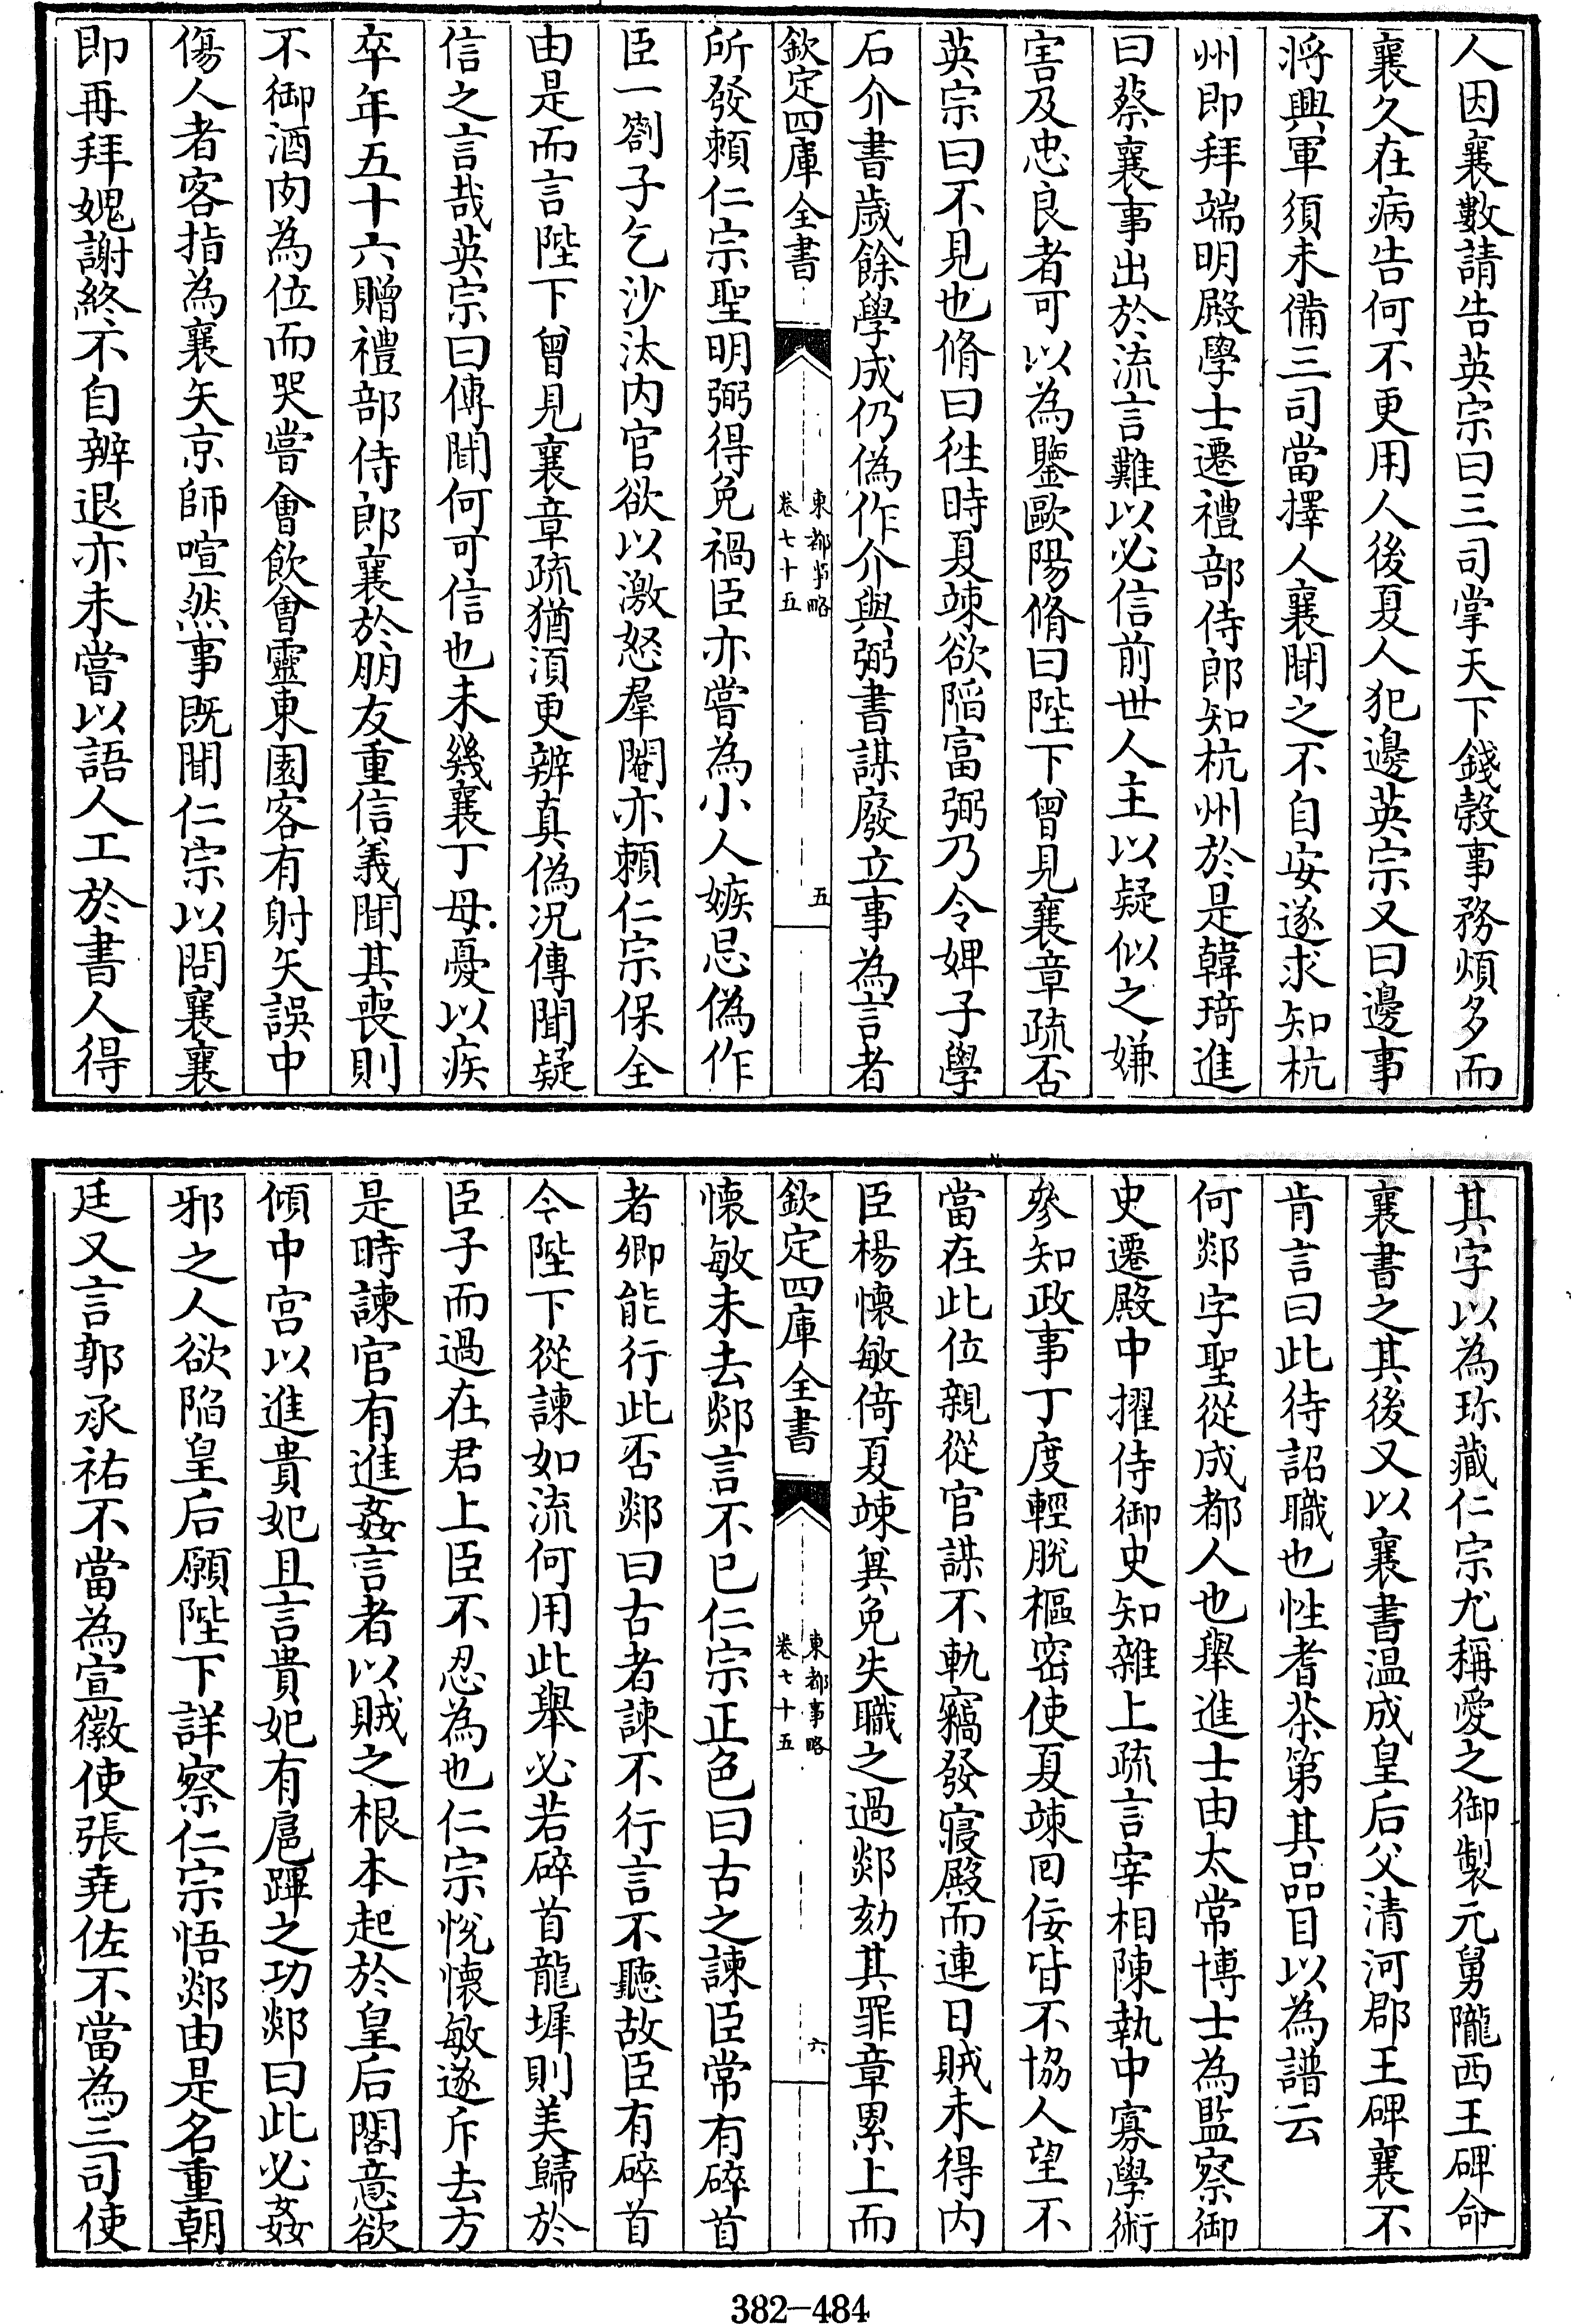 人因襄數請告英宗曰三司掌天下錢穀事務煩多而
襄久在病告何不更用人後夏人犯邊英宗又曰邊事
將興軍須未備三司當擇人襄聞之不自安遂求知杭
州即拜端明殿學士遷禮部侍郎知杭州於是韓琦進
曰蔡襄事出於流言難以必信前世人主以疑似之嫌
害及忠良者可以為鑒歐陽脩曰陛下曾見襄章疏否
英宗曰不見也脩曰徃時夏竦欲陷富弼乃令婢子學
石介書歲餘學成仍偽作介與弼書謀廢立事為言者
欽定四庫全書
東都事略
卷七十五
五
所發頼仁宗聖明弼得免禍臣亦嘗為小人嫉忌偽作
臣一劄子乞沙汰内官欲以激怒羣閹亦頼仁宗保全
由是而言陛下曾見襄章疏猶須更辨真偽况傳聞疑
信之言哉英宗曰傳聞何可信也未幾襄丁母憂以疾
卒年五十六贈禮部侍郎襄於朋友重信義聞其喪則
不御酒肉為位而哭嘗會飲會靈東園客有射矢誤中
傷人者客指為襄矢京師喧然事既聞仁宗以問襄襄
即再拜媿謝終不自辨退亦未嘗以語人工於書人得
其字以為珍藏仁宗尤稱愛之御製元舅隴西王碑命
襄書之其後又以襄書温成皇后父清河郡王碑襄不
肯言曰此待詔職也性耆茶第其品目以為譜云
何郯字聖從成都人也舉進士由太常博士為監察御
史遷殿中擢侍御史知雜上疏言宰相陳執中寡學術
參知政事丁度輕脱樞密使夏竦回佞皆不協人望不
當在此位親從官謀不軌竊發寢殿而連日賊未得内
臣楊懷敏倚夏竦兾免失職之過郯劾其罪章累上而
欽定四庫全書
東都事略
卷七十五
六
懷敏未去郯言不已仁宗正色曰古之諫臣常有碎首
者卿能行此否郯曰古者諫不行言不聽故臣有碎首
今陛下從諫如流何用此舉必若碎首龍墀則美歸於
臣子而過在君上臣不忍為也仁宗悦懷敏遂斥去方
是時諫官有進姦言者以賊之根本起於皇后閤意欲
傾中宮以進貴妃且言貴妃有扈蹕之功郯曰此必姦
邪之人欲陷皇后願陛下詳察仁宗悟郯由是名重朝
廷又言郭承祐不當為宣徽使張堯佐不當為三司使
382-484